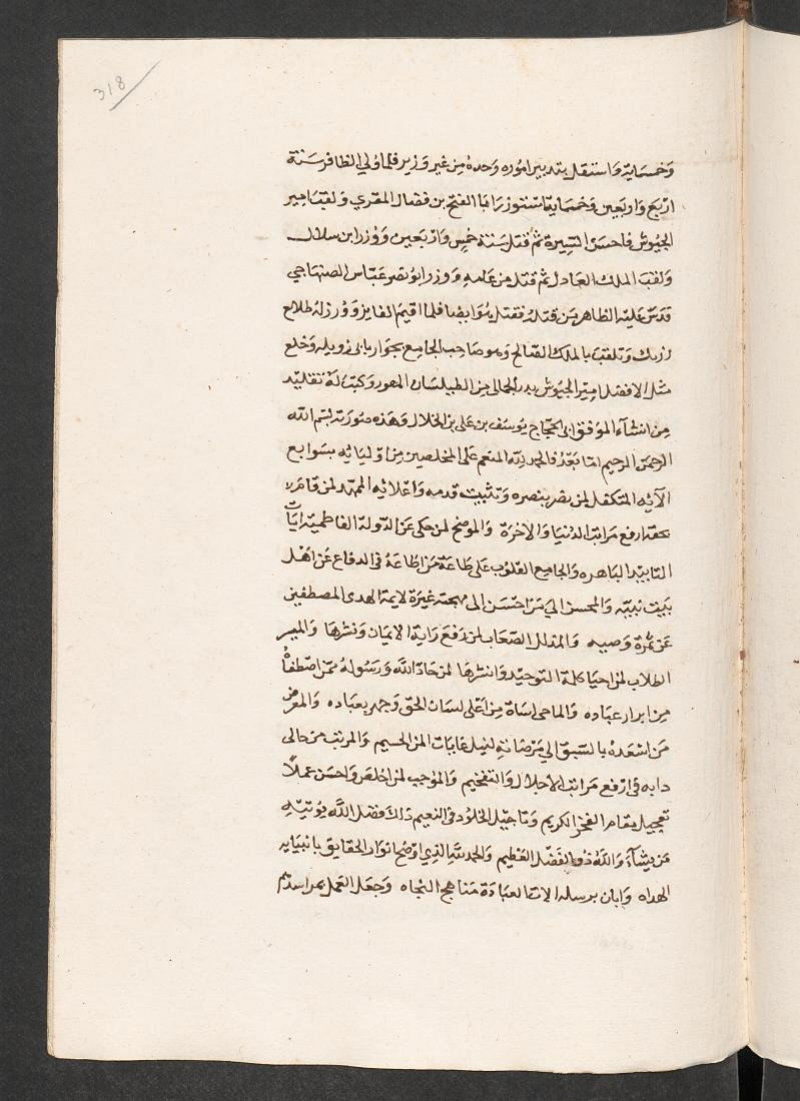 318
وخمسماية واستقل بتدبير اموره وحده من غير وزير فلما ولي الظافر سنة
اربع واربعين وخمسماية استوزر ابا الفتح بن فضال المقري ولقب امير
الجيوش فاحسن السيرة ثم قتل سنة خمس واربعين ووزر ابن سلال
ولقب الملك العادل ثم قتل من عامه ووزر ابو نصر عباس الصنهاجي
قدس عليه الظاهر من قتله فقتل هو ايضا فلما اقيم الفايز ووزر له طلايع
رزيك وتلقب بالملك الصالح وهو صاحب الجامع بجوار بابى زويله وخلع
مثل الافضل امير الجيوش بدر الجمالى من الطيلسان المقور وكتب له تقليد
من انشاء الموفق ابى الحجاج يوسف بن على بن الخلال وهذه صورته بسم الله
الرحمن الرحيم اما بعد فالحمد لله المنعم على المخلصين من اوليائه بسوابع
الآئه المتكفل لمن نصر بنصره وتثبيت قدمه واعلائه الممهد لمن قام
بحقه ارفع مراتب الدنيا والاخرة والموضح لمن حكى عن الدولة الفاطمية ايات
التاييد الباهره والجامع القلوب على طاعة من اطاعه فى الدفاع عن اهل
بيت نبيه والمحسن الى من احسن الى مهجته غيرة لايمة الهدى المصطفين
عن ثمرة وصيه والمذلل الصعاب لمن رفع راية الايمان ونشرها والميسر
الطلاب لمن احيا كلمة التوحيد وانشرها لمن حاد الله ورسوله ممن اصطفاه
من ابرار عباده والماحى اساة من اعلى لسان الحق وجهر بعباده والمعرض
من اسعده بالسبق الى مرضاته لنيل غايات المن الجسيم والمرتب من حالى
دابه فى ارفع مراتب الاجلال والتفخيم والموجب لمن اخلص واحسن عملا
تعجيل مقام الفخر الكريم وتاجيل الخلود فى النعيم ذلك فضل الله يوتيه
من يشاء والله ذو الفضل العظيم والحمد لله الذي اوضح انوار الحقايق بانبيايه
الهداه وابان برسله الامنا لعبادة مناهج النجاه وجعل العمل بمراسدهم